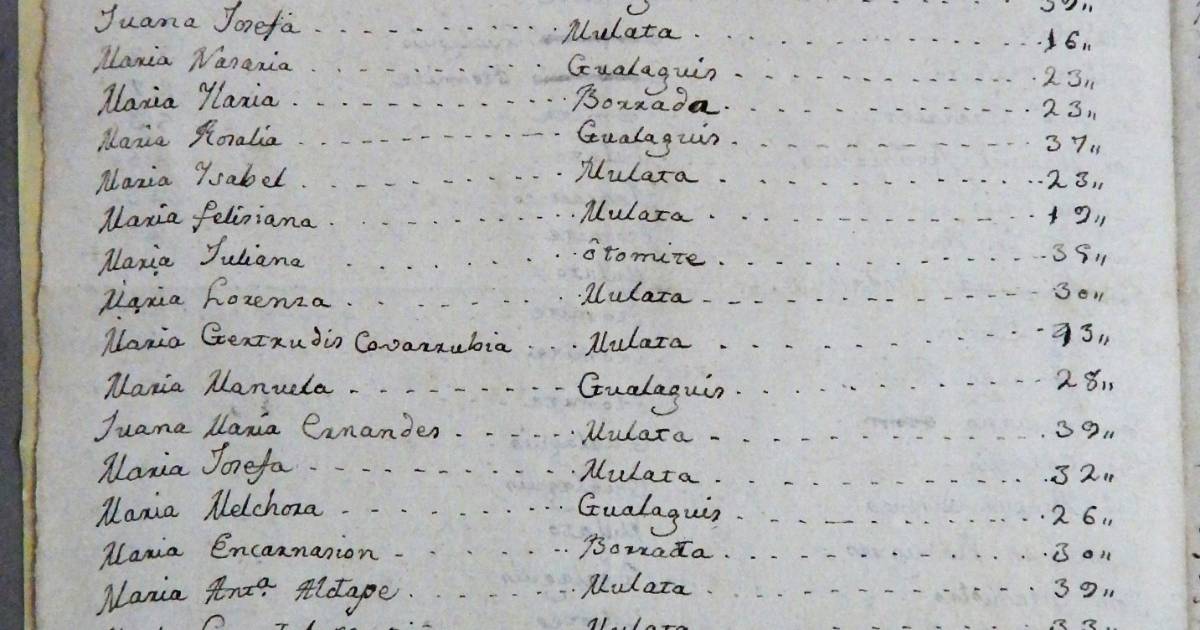 39„
Juana Josefa Mulata 16„
Maria Nasaria Gualaguis 23„
Maria Ylaria Borrada 23„
Maria Rosalia Gualaguis 37„
Maria Ysabel Mulata 23„
Maria felisiana Mulata 19„
Maria Juliana ôtomite 39„
Maria Lorenza Mulata 30„
Maria Gertrudis Covarrubia Mulata 13„
Maria Manuela Gualaguis 28„
Juana Maria Ernandes Mulata 39„
Maria Josefa Mulata 32„
Maria Melchora Gualaguis 26„
Maria Encarnasion Borrada 30„
Maria Antª Aldape Mulata 39„
Mulata 33„